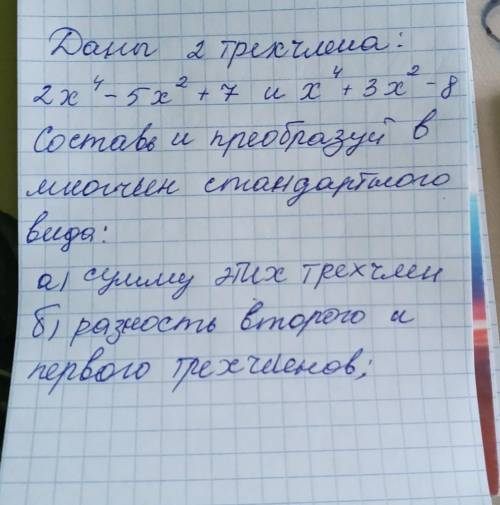 Даны 2 трехчлена:
2x⁴ - 5x² + 7 и x⁴ + 3x² - 8
Составь и преобразуй в
многчлен стандартного
вида:
а) сумму этих трехчлен
б) разность второго и
первого трехчленов;